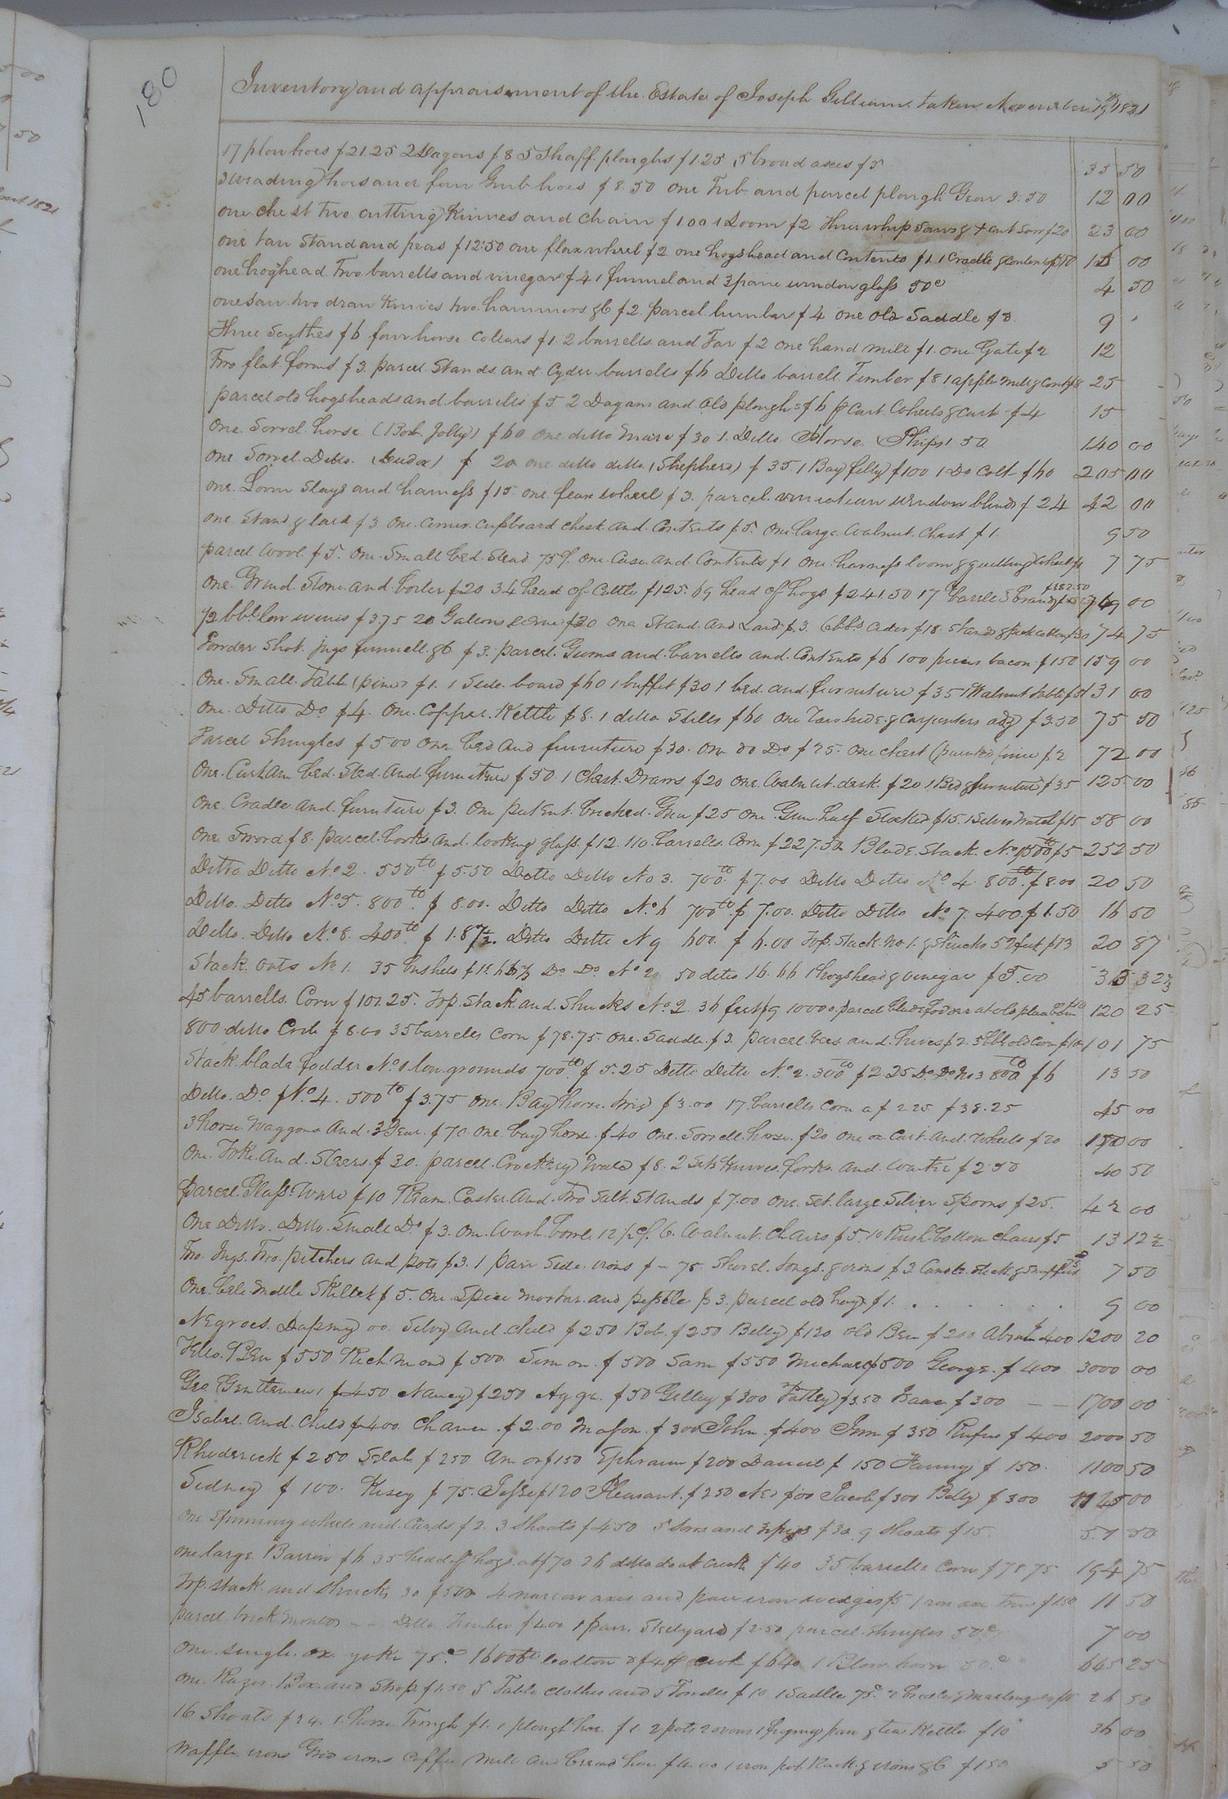 180
Inventory and appraisement of the Estate of Joseph Gilliam taken November 19th 1821
17 plow hoes $21.25 2 Dagons $8 5 Shaff ploughs $1.25 5 broad axes $5 35 50
3 weading hoes and four Grub hoes $8.50 one Tub and parcel plough Gear 3.50 12 00
one chest two cutting Knives and chain $1.00 1 Loom $2 three whip saws & + cut saw $20 23 00
one tan Stand and peas $12.50 one flax wheel $2 one hogshead and Contents $1. 1 Cradle & Contents 00
one hoghead Two barrells and vinegar $4 1 funnel and 3 pane window glass 50c 4 50
one saw two draw Knives two hammers &c $2 parcel lumber $4 one old Saddle $3 9
Three Scythes $6 four horse Collars $1. 2 barrells and Tar $2 one hand mill $1. one Gate $2 12
Two flat forms $3. parcel Stands and Cyder barrells $6 Ditto barrell Timber $8 1 apple mill & 25
parcel old hogsheads and barrells $5 2 Dagans and old ploughs $6 pr Cart Wheels & Cart $4 15
one Sorrel horse (Bob Jolly) $60 one ditto Mare $30 1 Ditto Horse (Phips) 50 140 00
one Sorrel Ditto $20 one ditto ditto (Shepherd) $35 1 Bay filly $100 1 Do Colt $60 205 00
one Loom Slays and harness $15 one wheel $3. parcel venetian window blinds $24 42 00
one Stand & lard $3 one corner Cupboard chest and Contents $5. one large Walnut Chest $1 9 50
parcel wool $5. one Small bed Stead 75c one Case and Contents $1 one harness loom & quilling wheel 7 75
one Grind Stone and boiler $20 34 head of Cattle $125. 69 head of hogs $241.50 17 barrels Brandy 00
bbl low wines $3.75 20 Galons $20 one Stand and Lard $3. 6 bbs Cider $18 Stand & pick cotton 74 75
Powder Shot Jugs funnell &c $3. parcel Gums and barrells and Contents $6 100 pieces bacon $150 159 00
one Small Table (pine) $1. 1 Side board $60 1 buffet $30 1 bed and furniture $35 1 Walnut table 131 00
one Ditto Do $4. one Copper Kettle $8. 1 ditto Stills $60 one Raw hide & Carpenters adz $3.50 75 50
Parcel Shingles $5.00 one bed and furniture $30. one do Do $25. one chest (painted pine) $2 72 00
one Curtain bed Sted and furniture $50 1 Chest Draws $20 one Walnut desk $20 1 Bed & furniture $35 125 00
one Cradle and furniture $3. one patent breched Gun $25 one Gun half Stocked $15. 1 Silver Watch $15 58 00
one Sword $8. parcel books and looking glass $12 110 barrells Corn $227.50 Blade Stack No 1 500lb $5 252 50
Ditto Ditto No 2. 550lb $5.50 Ditto Ditto No 3. 700lb $7.00 Ditto Ditto No 4. 800lb $8.00 20 50
Ditto Ditto No 5. 800lb $8.00. Ditto Ditto No 6 700lb $7.00 Ditto Ditto No 7. 400 $1.50 16 50
Ditto Ditto No 8. 400lb $1.87½ Ditto Ditto No 9 600 $6.00 Top Stack No 1. & Shucks 52 feet $13 20 87
Stack Oats No 1. 35 bushels Do Do No 2 50 ditto 16.66 1 hogshead & vinegar $5.00 35 32
45 barrells Corn $101.25. Top Stack and Shucks No 2 36 feet $9 1000 parcel blade fodder at old plantation 120 25
800 ditto Corn $8.00 35 barrells Corn $78.75 one Saddle $3. parcel bees and hives $2. 5 bbl old Corn $10 101 75
Stack blade fodder No 1 low grounds 700lb $5.25 Ditto Ditto No 2. 300lb $2.25 Do Do No 3 800lb $6 13 50
Ditto Do No 4. 500lb $3.75 one Bay horse $3.00 17 barrells Corn a $2.25 $38.25 45 00
3 horse Waggons and 3 Gear $70 one bay horse $40 one Sorrell horse $20 one ox Cart and wheels $20 150 00
one Yoke and Steers $30. parcel Crockery Ware $8. 2 Sets Knives forks and Waiter $2.50 40 50
parcel Glass Ware $10 1 Castor and two Salt Stands $7.00 one Set large Silver Spoons $25 42 00
One Ditto Ditto Small Do $3. one Wash bowl 12½c 6 Walnut Chairs $5. 10 Rush bottom Chairs $5 13 12½
Two Jugs Two pitchers and pots $3. 1 pair Side irons $ - 75 Shovel tongs & irons $3 Candle stick & snuffers 7 50
One Bell Mettle Skillet $5. one Spice mortar and pestle $3. parcel old hay $1. 9 00
Negroes Dafney 00. Silvy and child $250 Bob $250 Betty $120 old Ben $200 Abram $400 1200 20
Ditto Ben $550 Richmond $500 Simon $500 Sam $550 Michael $500 George $400 3000 00
Geo (Gentleman) $450 Nancy $250 Agga $50 Gilley $300 Patley $350 Isaac $300 1700 00
Isabel and Child $400 Chance $200 Mason $300 John $400 Jim $350 Rufus $400 2000 50
Rhoderick $250 Selah $250 Amos $150 Ephraim $200 Daniel $150 Fanny $150 1100 50
Sidney $100. Kesey $75. Jesse $120 Pleasant $250 Ned $00 Jacob $300 Betty $300 1145 00
one Spinning wheel and Cards $2. 3 Shoats $4.50 5 Sows and 3 pigs $30 9 Shoats $15 51 50
one large Barrow $6 35 head of hogs at $70 26 ditto do at creek $40 35 barrells Corn $78.75 194 75
Top stack and shucks 20 $5.00 4 narrow axes and pair iron wedges $5 1 iron axe tree $1.50 11 50
parcel brick moulds Ditto timber $4.00 1 pair Stelyards $2.50 parcel shingles 50c 7 00
one single ox yoke 75c 16000lb Cotton $4 pr cwt $640 1 Blow horn 50c 645 25
one Razor Box and Strop $1.50 5 Table Clothes and 5 Towells $10 1 Saddle 75c 26 50
16 Shoats $24 1 horse Trough $1. 1 plough hoe $1 2 pots 2 ovens 1 frying pan & tea Kettle $10 36 00
Waffle irons Grid irons Coffee mill and bread hoe $4.00 1 iron pot Rack & irons &c $1.50 5 50